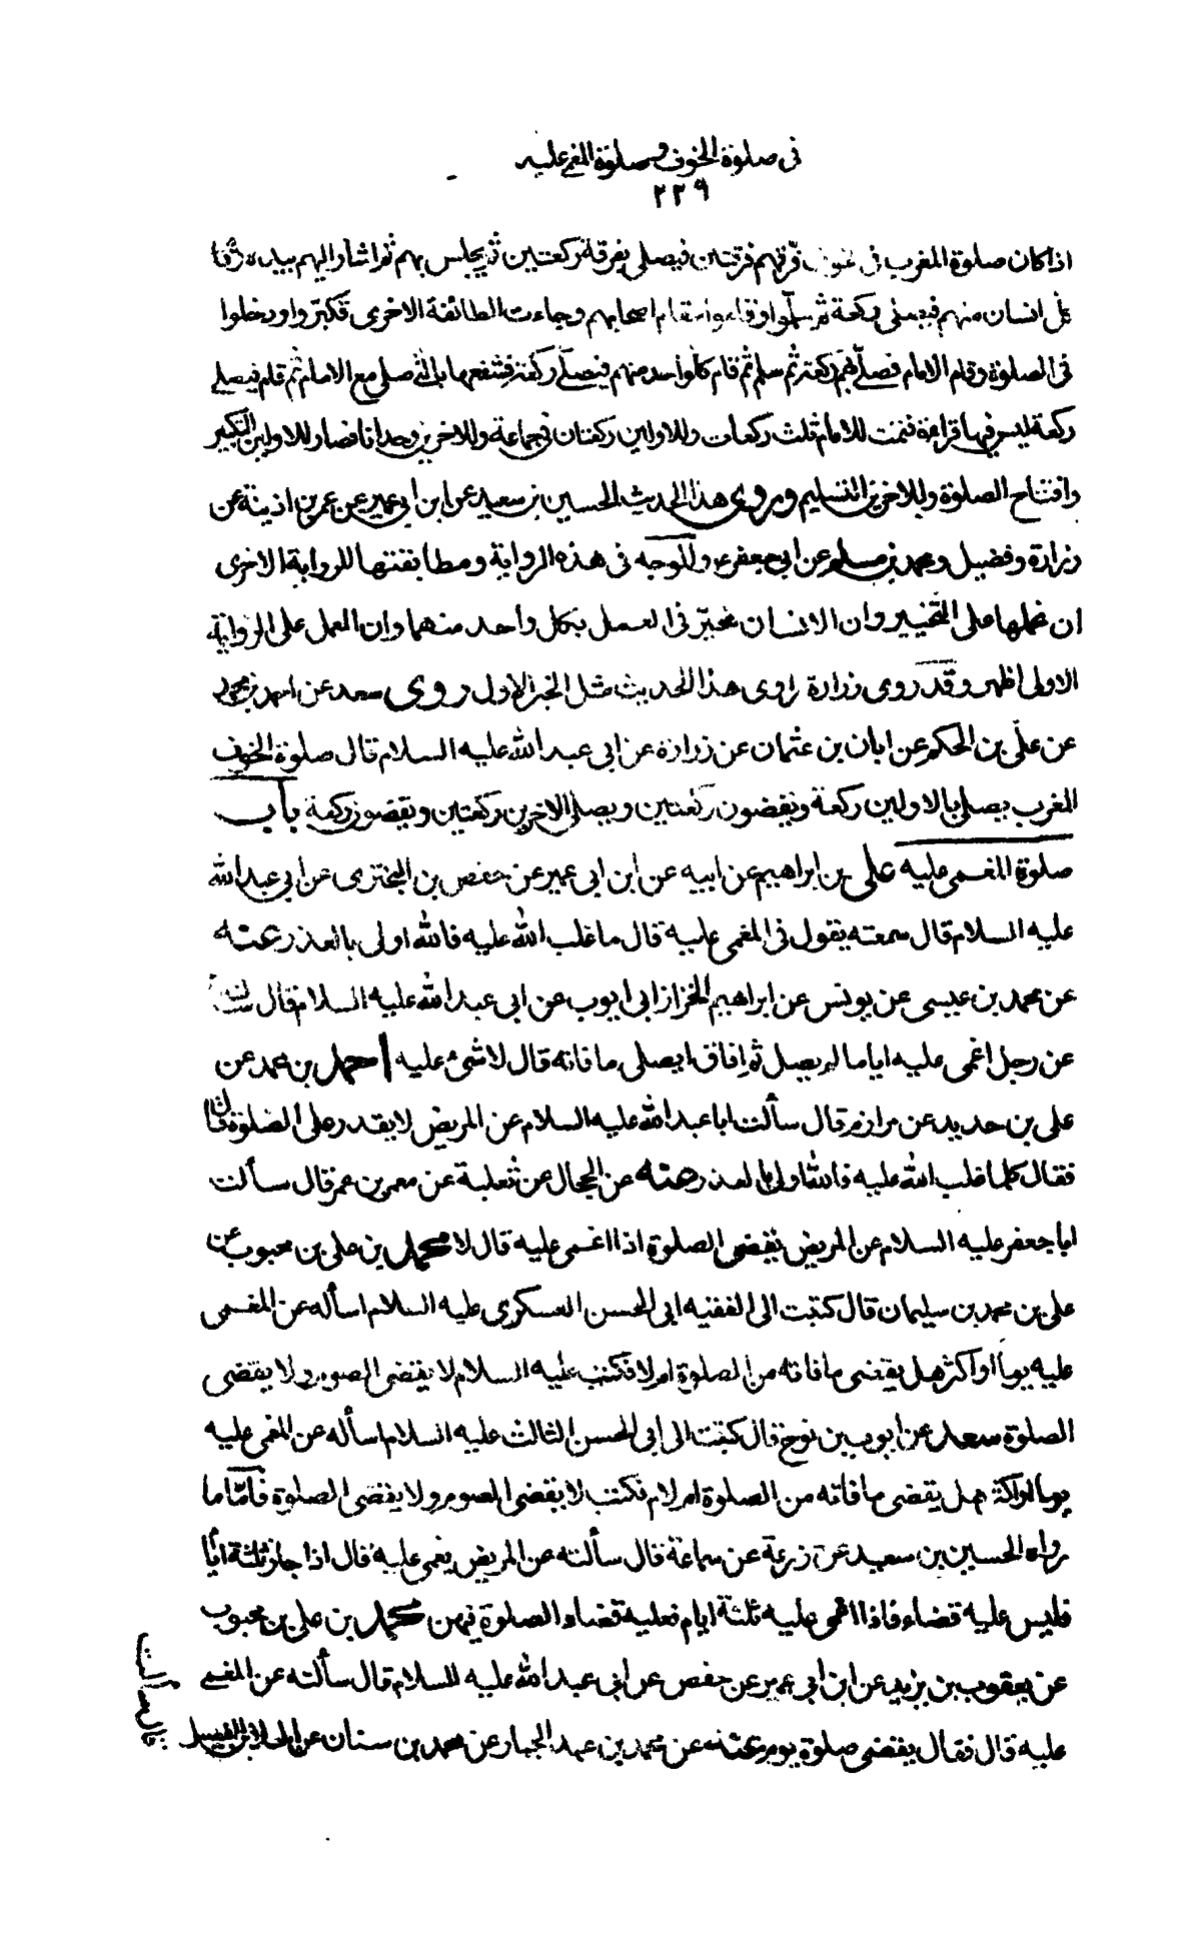 فى صلوة الخوف وصلوة المغمى عليه
٢٢٩
اذا كان صلوة المغرب فى الخوف فرقهم فرقتين فيصلى بفرقة ركعتين ثم يجلس بهم ثم اشار اليهم بيده فقام
كل انسان منهم فيصلى ركعة ثم سلموا وقاموا مقام اصحابهم وجاءت الطائفة الاخرى فكبروا ودخلوا
فى الصلوة وقام الامام فصلى بهم ركعة ثم سلم ثم قام كل واحد منهم فيصلى ركعة فشفعها بالتى صلى مع الامام ثم قام فيصلى
ركعة ليس فيها قراءة فتمت للامام ثلث ركعات وللاولين ركعتان فى جماعة وللاخرين وحدانا فصار للاولين التكبير
وافتتاح الصلوة وللاخرين التسليم وروى هذا الحديث الحسين بن سعيد عن ابن ابى عمير عن عمر بن اذينة عن
زرارة وفضيل ومحمد بن مسلم عن ابى جعفر ع والوجه فى هذه الرواية ومطابقتها للرواية الاخرى
ان نحملها على التخيير وان الانسان مخير فى العمل بكل واحد منهما وان العمل على الرواية
الاولى اظهر وقد روى زرارة راوى هذا الحديث مثل الخبر الاول روى سعد عن احمد بن محمد
عن على بن الحكم عن ابان بن عثمان عن زرارة عن ابى عبد الله عليه السلام قال صلوة الخوف
المغرب يصلى بالاولين ركعة ويقضون ركعتين ويصلى بالاخرين ركعتين ويقضون ركعة باب
صلوة المغمى عليه على بن ابراهيم عن ابيه عن ابن ابى عمير عن حفص بن البخترى عن ابى عبد الله
عليه السلام قال سمعته يقول فى المغمى عليه قال ما غلب الله عليه فالله اولى بالعذر عنه
عن محمد بن عيسى عن يونس عن ابراهيم الخزاز ابى ايوب عن ابى عبد الله عليه السلام قال سألته
عن رجل اغمى عليه اياما لم يصل ثم افاق ايصلى ما فاته قال لا شىء عليه احمد بن محمد عن
على بن حديد عن مرازم قال سألت ابا عبد الله عليه السلام عن المريض لا يقدر على الصلوة قال
فقال كلما غلب الله عليه فالله اولى بالعذر عنه عن الحجال عن ثعلبة عن معمر بن عمر قال سألت
ابا جعفر عليه السلام عن المريض يقضى الصلوة اذا اغمى عليه قال لا محمد بن على بن محبوب عن
على بن محمد بن سليمان قال كتبت الى الفقيه ابى الحسن العسكرى عليه السلام اسأله عن المغمى
عليه يوما او اكثر هل يقضى ما فاته من الصلوة ام لا فكتب عليه السلام لا يقضى الصوم ولا يقضى
الصلوة سعد عن ايوب بن نوح قال كتبت الى ابى الحسن الثالث عليه السلام اسأله عن المغمى عليه
يوما او اكثر هل يقضى ما فاته من الصلوة ام لا فكتب لا يقضى الصوم ولا يقضى الصلوة فاما ما
رواه الحسين بن سعيد عن زرعة عن سماعة قال سألته عن المريض يغمى عليه قال اذا جاز ثلثة ايام
فليس عليه قضاء فاذا اغمى عليه ثلثة ايام فعليه قضاء الصلوة فيهن محمد بن على بن محبوب
عن يعقوب بن يزيد عن ابن ابى عمير عن حفص عن ابى عبد الله عليه السلام قال سألته عن المغمى
عليه قال فقال يقضى صلوة يوم عنه عن محمد بن عبد الجبار عن محمد بن سنان عن العلاء بن الفضيل
قال سألت